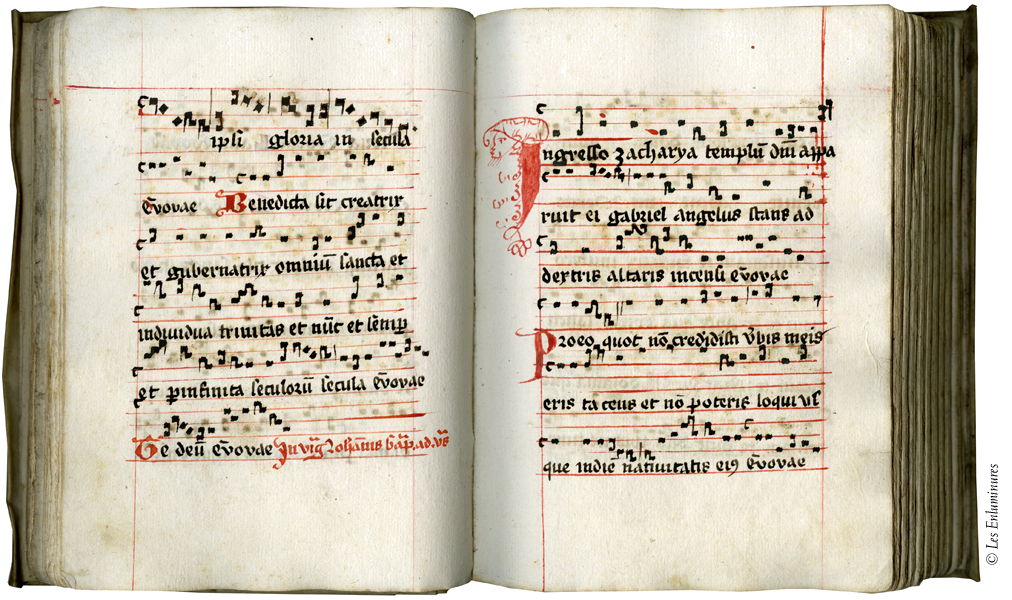 ipsi gloria in secula
Evovae Benedicta sit creatrix
et gubernatrix omniū sancta et
individua trinitas et nūc et semp
et pinfinita seculorū secula evovae
Te deū evovae In vig Johannis bap. ad. vs
Ingresso zacharya templū dm̄ appa
ruit ei gabriel angelus stans ad
dextris altaris incensi evovae
Proeo quot nō credidisti vbis meis
eris taceus et nō poteris loqui usq
que indiē nativitatis ei9 Evovae
© Les Enluminures